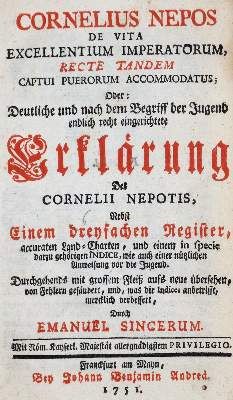 CORNELIUS NEPOS
DE VITA
EXCELLENTIUM IMPERATORUM,
RECTE TANDEM
CAPTUI PUERORUM ACCOMMODATUS;
Oder:
Deutliche und nach dem Begriff der Jugend
endlich recht eingerichtete
Erklärung
Des
CORNELII NEPOTIS,
Nebst
Einem dreyfachen Register,
accuraten Land-Charten, und einem in specie
darzu gehörigen INDICE, wie auch einer nützlichen
Anweisung vor die Jugend.
Durchgehends mit grossem Fleiß aufs neue übersehen,
von Fehlern gesäubert, und, was die Indices anbetrifft,
mercklich verbessert,
Durch
EMANUEL SINCERUM.
Mit Röm. Kayserl. Majestät allergnädigstem PRIVILEGIO.
Franckfurt am Mayn,
Bey Johann Benjamin Andreä.
1751.